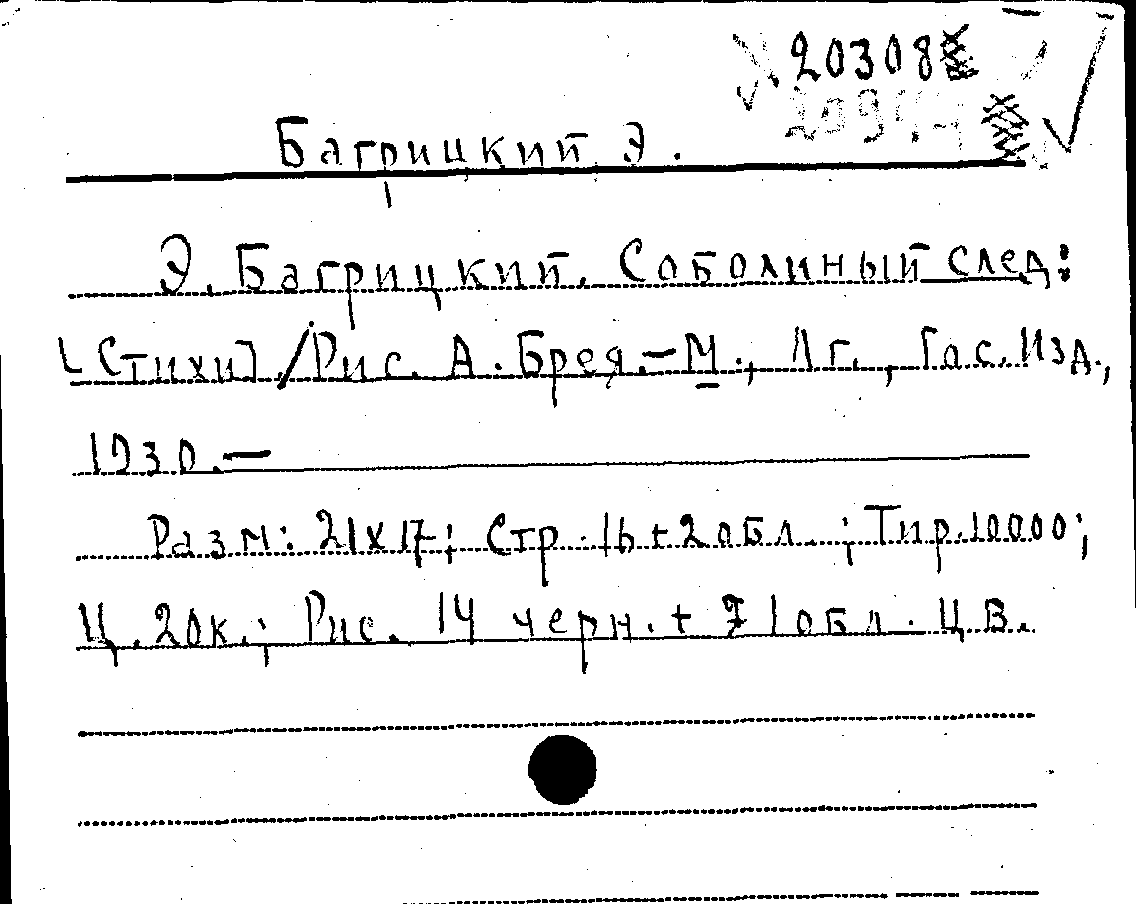 20308
Багрицкий Э.
Э. Багрицкий. Соболиный след:
[Стихи] / Рис. А. Брея. – М.; Лг., Гос. Изд.,
1930. –
Разм: 21х17; Стр. 16 + 2 обл.; Тир. 10000;
Ц. 20к.; Рис. 14 черн. + 1 обл. цв.